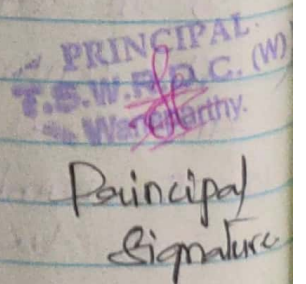 PRINCIPAL
T.S.W.R.D.C. (W)
Wanaparthy.
Principal
Signature